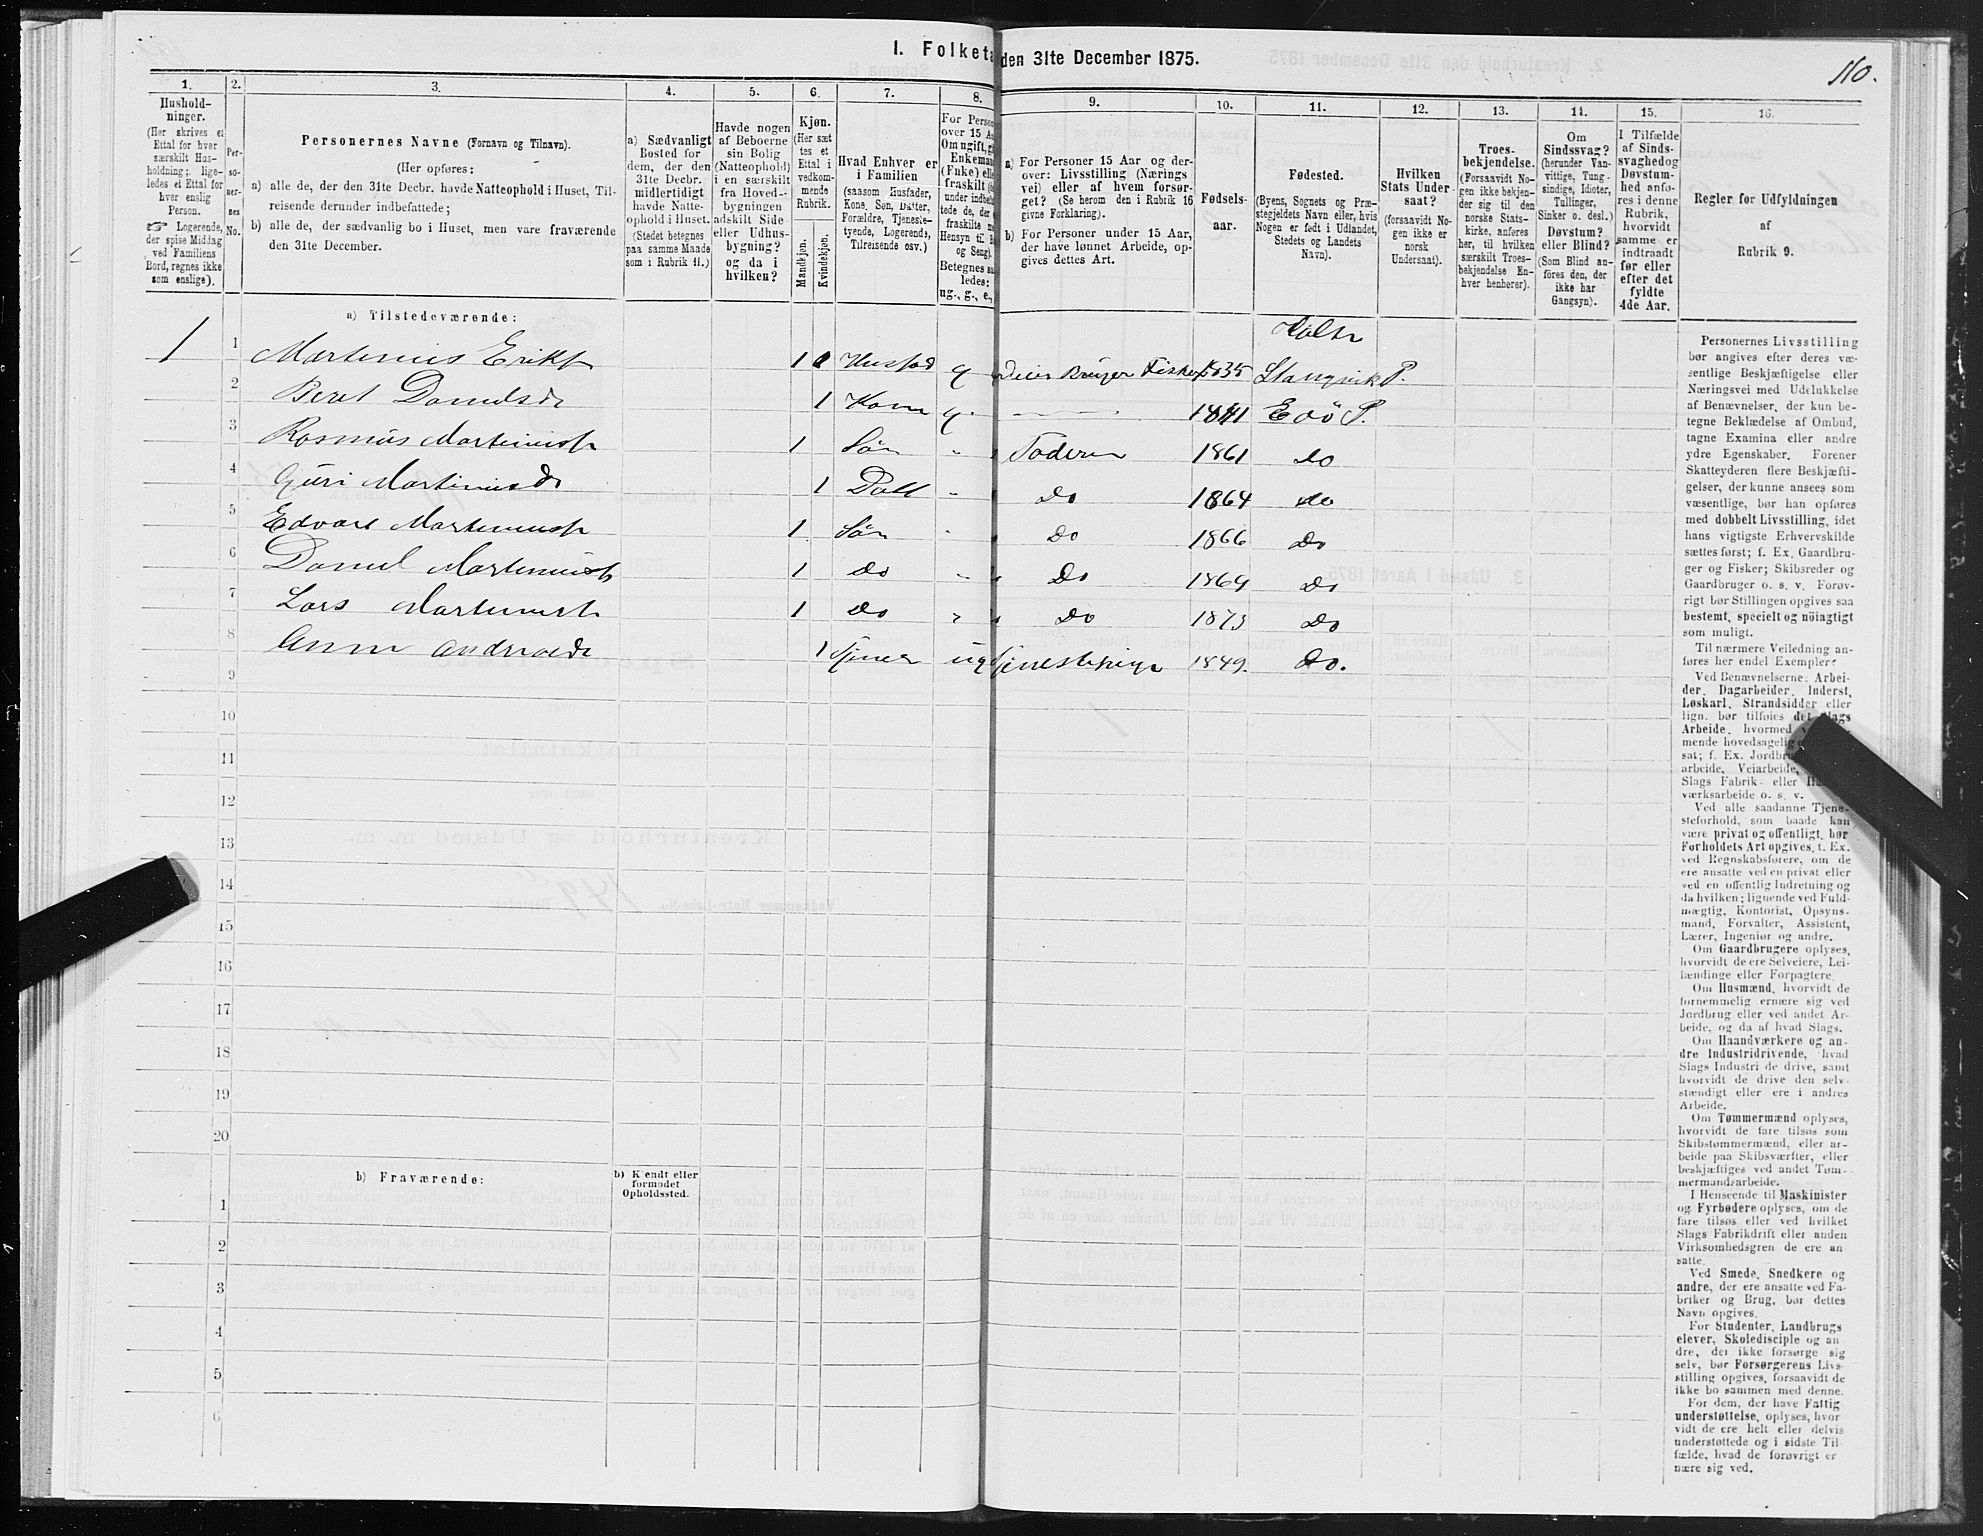 110.
I. Folketa den 31te December 1875.
1. 2. 3. 4. 5. 6. 7. 8. 9. 10. 11. 12. 13. 14. 15. 16.
Hushold-
ninger.
(Her skrives et
Ettal for hver
særskilt Hus-
holdning; lige-
ledes et Ettal for
hver enslig
Person.
☞ Logerende,
der spise Middag
ved Familiens
Bord, regnes ikke
som enslige).
Per-
so-
ner-
nes
No.
Personernes Navne (Fornavn og Tilnavn).
(Her opføres:
a) alle de, der den 31te Decbr. havde Natteophold i Huset, Til-
reisende derunder indbefattede;
b) alle de, der sædvanlig bo i Huset, men vare fraværende
den 31te December.
a) Sædvanligt
Bosted for
dem, der den
31te Decbr.
midlertidigt
havde Natte-
ophold i Huset.
(Stedet betegnes
paa samme Maade
som i Rubrik 11.)
Havde nogen
af Beboerne
sin Bolig
(Natteophold)
i en særskilt
fra Hoved-
bygningen
adskilt Side
eller Udhus-
bygning?
og da i
hvilken?
Kjøn.
(Her sæt
tes et
Ettal i
vedkom-
mende
Rubrik.
Mandkjøn.
Kvindekjøn.
Hvad Enhver er
i Familien
(saasom Husfader,
Kone, Søn, Datter,
Forældre, Tjeneste-
tyende, Logerende,
Tilreisende osv.)
For Person
over 15 Aa
Om ugift, gi
Enkeman
(Enke) elle
fraskilt
under indbefa
tede de, der
fraskilte
Hensyn til
og Seng).
Betegnes saa
ledes:
ug., g., e.,
a) For Personer 15 Aar og der-
over: Livsstilling (Nærings
vei) eller af hvem forsør-
get? (Se herom den i Rubrik 16
givne Forklaring).
b) For Personer under 15 Aar,
der have lønnet Arbeide, op-
gives dettes Art.
Fødsels-
aar.
Fødested.
(Byens, Sognets og Præ-
stegjeldets Navn eller, hvis
Nogen er født i Udlandet,
Stedets og Landets
Navn).
Hvilken
Stats Under-
saat?
(forsaavidt No-
gen ikke er
norsk
Undersaat).
Troes-
bekjendelse.
(Forsaavidt No-
gen ikke bekjen-
der sig til den
norske Stats-
kirke, anføres
her, til hvilken
særskilt Troes-
bekjendelse En-
hver henhører).
Om
Sindssvag?
(herunder Van-
vittige, Tung-
sindige, Idioter,
Tullinger,
Sinker o. desl.)
Døvstum?
eller Blind?
(Som Blind an-
føres den, der
ikke har
Gangsyn).
I Tilfælde
af Sinds-
svaghed og
Døvstum-
hed anfø-
res i denne
Rubrik,
hvorvidt
samme er
indtraadt
før eller
efter det
fyldte
4de Aar.
Regler for Udfyldningen
af
Rubrik 9.
a) Tilstedeværende:
Halsa
1 1 Martinus Eriks. 1 Husfad g Fisker 1835 Stangvik P.
2 Beret Danielsd. 1 Kone g. 1841 Edö P.
3 Rasmus Martinus. 1 Søn Faderen 1861 do
4 Guri Martinusd. 1 Datt Do 1864 do
5 Edvart Martinus. 1 Søn Do 1866 Do
6 Daniel Martinus. 1 Do Do 1869 Do
7 Lars Martinus. 1 Do Do 1873 Do
8 Anne Andersd. 1 tjener ug Tjenestepige 1849. Do.
9
10
11
12
13
14
15
16
17
18
19
20
b) Fraværende:
b) Kjendt eller
formodet
Opholdssted.
1
2
3
4
5
6
Personernes Livsstilling
bør angives efter deres væ-
sentlige Beskjæftigelse eller
Næringsvei med Udelukkelse
af Benævnelser, der kun be-
tegne Beklædelse af Ombud,
tagne Examina eller andre
ydre Egenskaber. Forener
Skatteyderen flere Beskjæfti-
gelser, der kunne ansees som
væsentlige, bør han opføres
med dobbelt Livsstilling, idet
hans vigtigste Erhvervskilde
sættes først; f. Ex. Gaardbru-
ger og Fisker; Skibsreder og
Gaardbruger o. s. v. Forøv-
rigt bør Stillingen opgives saa
bestemt, specielt og nöiagtigt
som muligt.
Til nærmere Veiledning an-
føres her endel Exempler:
Ved Benævnelserne: Arbei-
der, Dagarbeider, Inderst,
Løskarl, Strandsidder eller
lign. bør tilføies det Slags
Arbeide, hvormed
mende hovedsagelig
sat; f. Ex. Jordbr
arbeide, Veiarbeide,
Slags Fabrik- eller
værksarbeide o. s. v.
Ved alle saadanne Tjene-
steforhold, som baade kan
være privat og offentligt, bør
Forholdets Art opgives, t. Ex.
ved Regnskabsførere, om de
ere ansatte ved en privat eller
ved en offentlig Indretning og
da hvilken; lignende ved Fuld-
mægtig, Kontorist, Opsyns-
mand, Forvalter, Assistent,
Lærer, Ingeniør og andre.
Om Gaardbrugere oplyses,
hvorvidt de ere Selveiere, Lei-
lændinge eller Forpagtere.
Om Husmænd, hvorvidt de
fornemmelig ernære sig ved
Jordbrug eller ved andet Ar-
beide, og da af hvad Slags.
Om Haandværkere og an-
dre Industridrivende, hvad
Slags Industri de drive, samt
hvorvidt de drive den selv-
stændigt eller ere i andres
Arbeide.
Om Tømmermænd oplyses,
hvorvidt de fare tilsøs som
Skibstømmermænd, eller ar-
beide paa Skibsværfter, eller
beskjæftiges ved andet Tøm-
mermandsarbeide.
I Henseende til Maskinister
og Fyrbødere oplyses, om de
fare tilsøs eller ved hvilket
Slags Fabrikdrift eller anden
Virksomhedsgren de ere an-
satte.
Ved Smede, Snedkere og
andre, der ere ansatte ved Fa-
briker og Brug, bør dettes
Navn opgives.
For Studenter, Landbrugs
elever, Skoledisciple og an-
dre, der ikke forsørge sig
selv, bør Forsørgerens Livs-
stilling opgives, forsaavidt de
ikke bo sammen med denne.
For dem, der have Fattig-
understøttelse, oplyses, hvor
vidt de ere helt eller delvis
understøttede og i sidste Til-
fælde, hvad de forøvrigt er
nære sig ved.